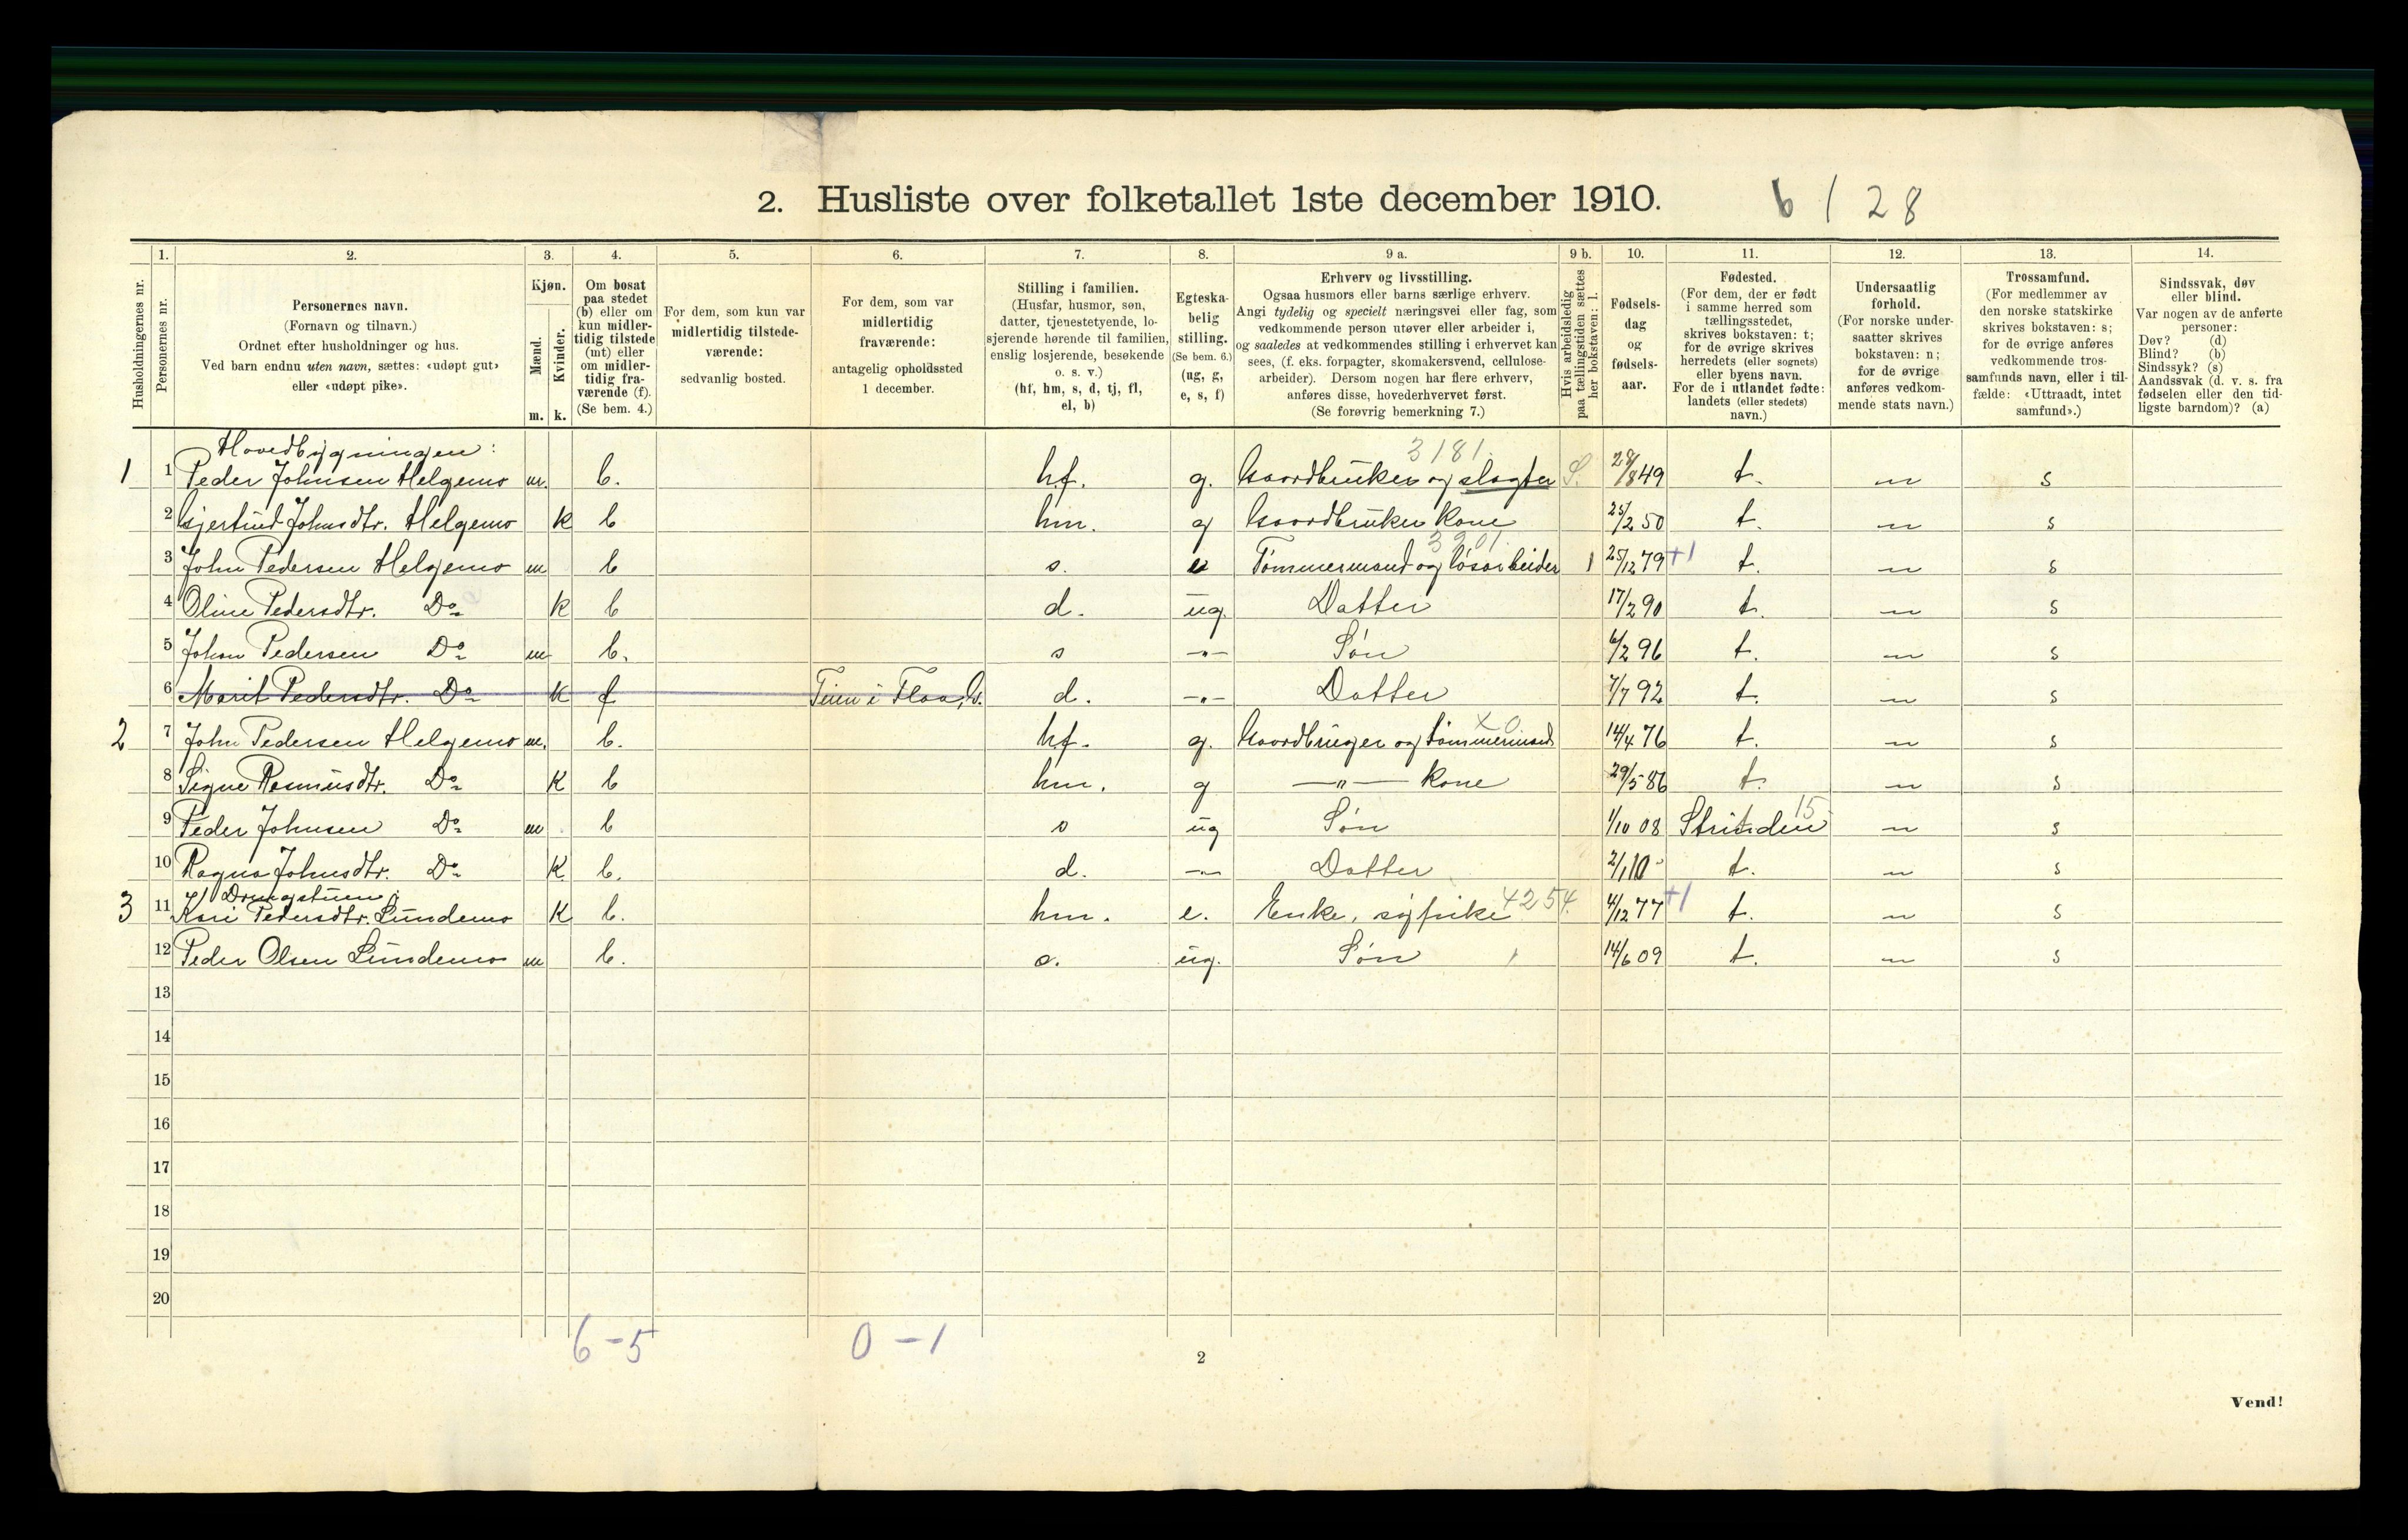 2. Husliste over folketallet 1ste december 1910. 6 / 28
1. 2. 3. 4. 5. 6. 7. 8. 9 a. 9 b. 10. 11. 12. 13. 14.
Husholdningernes nr.
Personernes nr.
Personernes navn.
(Fornavn og tilnavn.)
Ordnet efter husholdninger og hus.
Ved barn endnu uten navn, sættes: «udøpt gut»
eller «udøpt pike».
Kjøn.
Mænd.
m.
Kvinder.
k.
Om bosat
paa stedet
(b) eller om
kun midler-
tidig tilstede
(mt) eller
om midler-
tidig fra-
værende (f).
(Se bem. 4.)
For dem, som kun var
midlertidig tilstede-
værende:
sedvanlig bosted.
For dem, som var
midlertidig
fraværende:
antagelig opholdssted
1 december.
Stilling i familien.
(Husfar, husmor, søn,
datter, tjenestetyende, lo-
sjerende hørende til familien,
enslig losjerende, besøkende
o. s. v.)
(hf, hm, s, d, tj, fl,
el, b)
Egteska-
belig
stilling.
(Se bem. 6.)
(ug, g,
e, s, f)
Erhverv og livsstilling.
Ogsaa husmors eller barns særlige erhverv.
Angi tydelig og specielt næringsvei eller fag, som
vedkommende person utøver eller arbeider i,
og saaledes at vedkommendes stilling i erhvervet kan
sees, (f. eks. forpagter, skomakersvend, cellulose-
arbeider). Dersom nogen har flere erhverv,
anføres disse, hovederhvervet først.
(Se forøvrig bemerkning 7.)
Hvis arbeidsledig
paa tællingstiden sættes
her bokstaven: l.
Fødsels-
dag
og
fødsels-
aar.
Fødested.
(For dem, der er født
i samme herred som
tællingsstedet,
skrives bokstaven: t;
for de øvrige skrives
herredets (eller sognets)
eller byens navn.
For de i utlandet fødte:
landets (eller stedets)
navn.)
Undersaatlig
forhold.
(For norske under-
saatter skrives
bokstaven: n;
for de øvrige
anføres vedkom-
mende stats navn.)
Trossamfund.
(For medlemmer av
den norske statskirke
skrives bokstaven: s;
for de øvrige anføres
vedkommende tros-
samfunds navn, eller i til-
fælde: «Uttraadt, intet
samfund».)
Sindssvak, døv
eller blind.
Var nogen av de anførte
personer:
Døv? (d)
Blind? (b)
Sindssyk? (s)
Aandssvak (d. v. s. fra
fødselen eller den tid-
ligste barndom)? (a)
Hovedbygningen: 3181.
1 1 Peder Johnsen Helgemo m. b. hf. g. Gaardbruker og slagter S. 28/8 49 t. n s
2 Gjertrud Johnsdtr. Helgemo k b hm. g Gaardbruker Kone 25/2 50 t. n s
3201.
3 John Pedersen Helgemo m b s. e Tømmermand og løsarbeider l 25/12 79 +1 t. n s
4 Oline Pedersdtr. Do k b d. ug. Datter 17/2 90 t. n s
5 Johan Pedersen Do m b. s -"- Søn 6/2 96 t. n s
6 Marit Pedersdtr. Do k f Teien i Flaa, G. d. -"- Datter 7/7 92 t. n s
x0
2 7 John Pedersen Helgemo m. b. hf. g. Gaardbruger og tømmermand 14/4 76 t. n s
8 Signe Rasmusdtr. Do k b hm. g -"- kone 29/5 86 t. n s
9 Peder Johnsen Do m b s ug Søn 1/10 08 Strinden 15 n s
10 Ragna Johnsdtr. Do k b. d. -"- Datter 2/1 10 t. n s
Drengstuen:
3 11 Kari Pedersdtr. Lundemo k b. hm. e. Enke, sypike 4254. 4/12 77 +1 t. n s
12 Peder Olsen Lundemo m b. s. ug. Søn 14/6 09 t. n s
13
14
15
16
17
18
19
20
6-5 0-1
2
Vend!